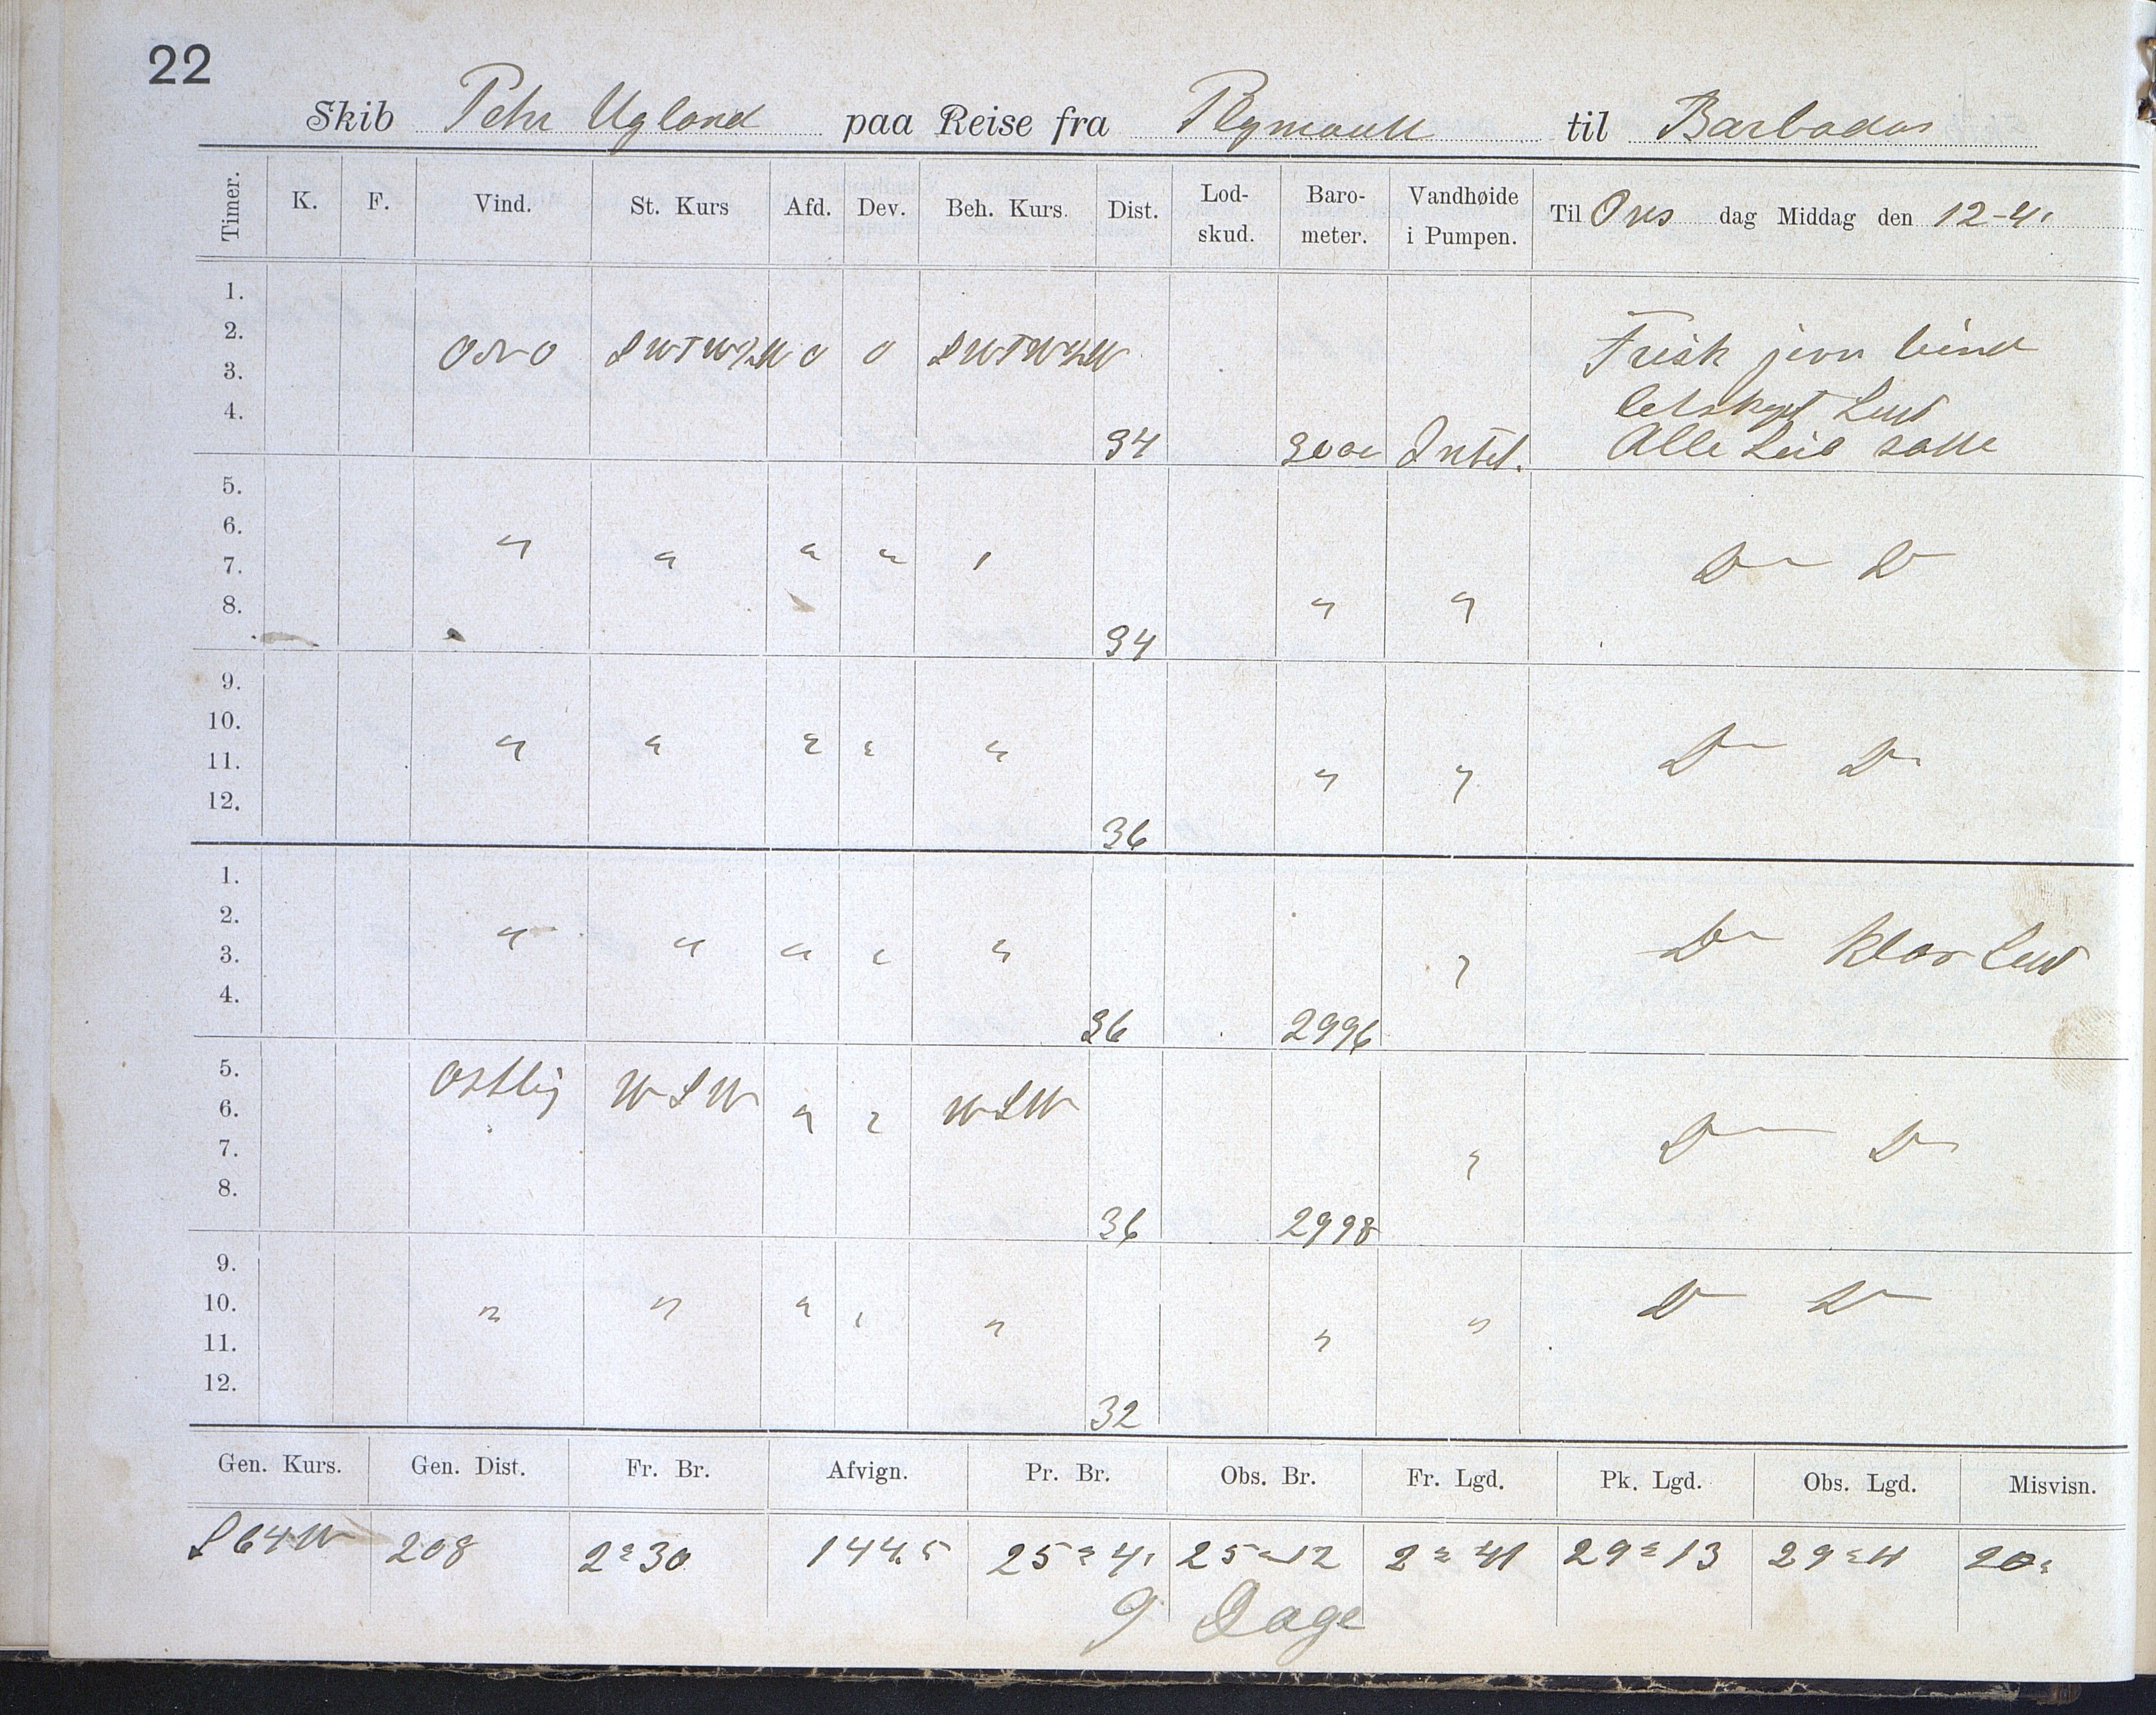 22
Skib Peter Ugland paa Reise fra Plymouth til Barbados
Timer. K. F. Vind. St. Kurs Afd. Dev. Beh. Kurs. Dist. Lod-skud. Baro-meter. Vandhøide i Pumpen. Til Ons dag Middag den 12-4.
1.
2. Frisk jevn vind
3. ONO SWTW½W 0 0 SWTW½W
4. letskyet Luft
34 3000 Intet. Alle Seil satte
5.
6.
7. " " " " " D D
8. " "
34
9.
10.
11. " " " " " D D
12. " "
36
1.
2.
3. " " " " " " D Klar Luft
4.
36 2996
5.
6. Ostlig WSW " " WSW
7. " D D
8.
36 2998
9.
10. " " " " " " D D
11. "
12.
32
Gen. Kurs. Gen. Dist. Fr. Br. Afvign. Pr. Br. Obs. Br. Fr. Lgd. Pk. Lgd. Obs. Lgd. Misvisn.
S64W 208 2=30 144.5 25=4. 25=12 2=41 29=13 29=11 20=
9 Dage